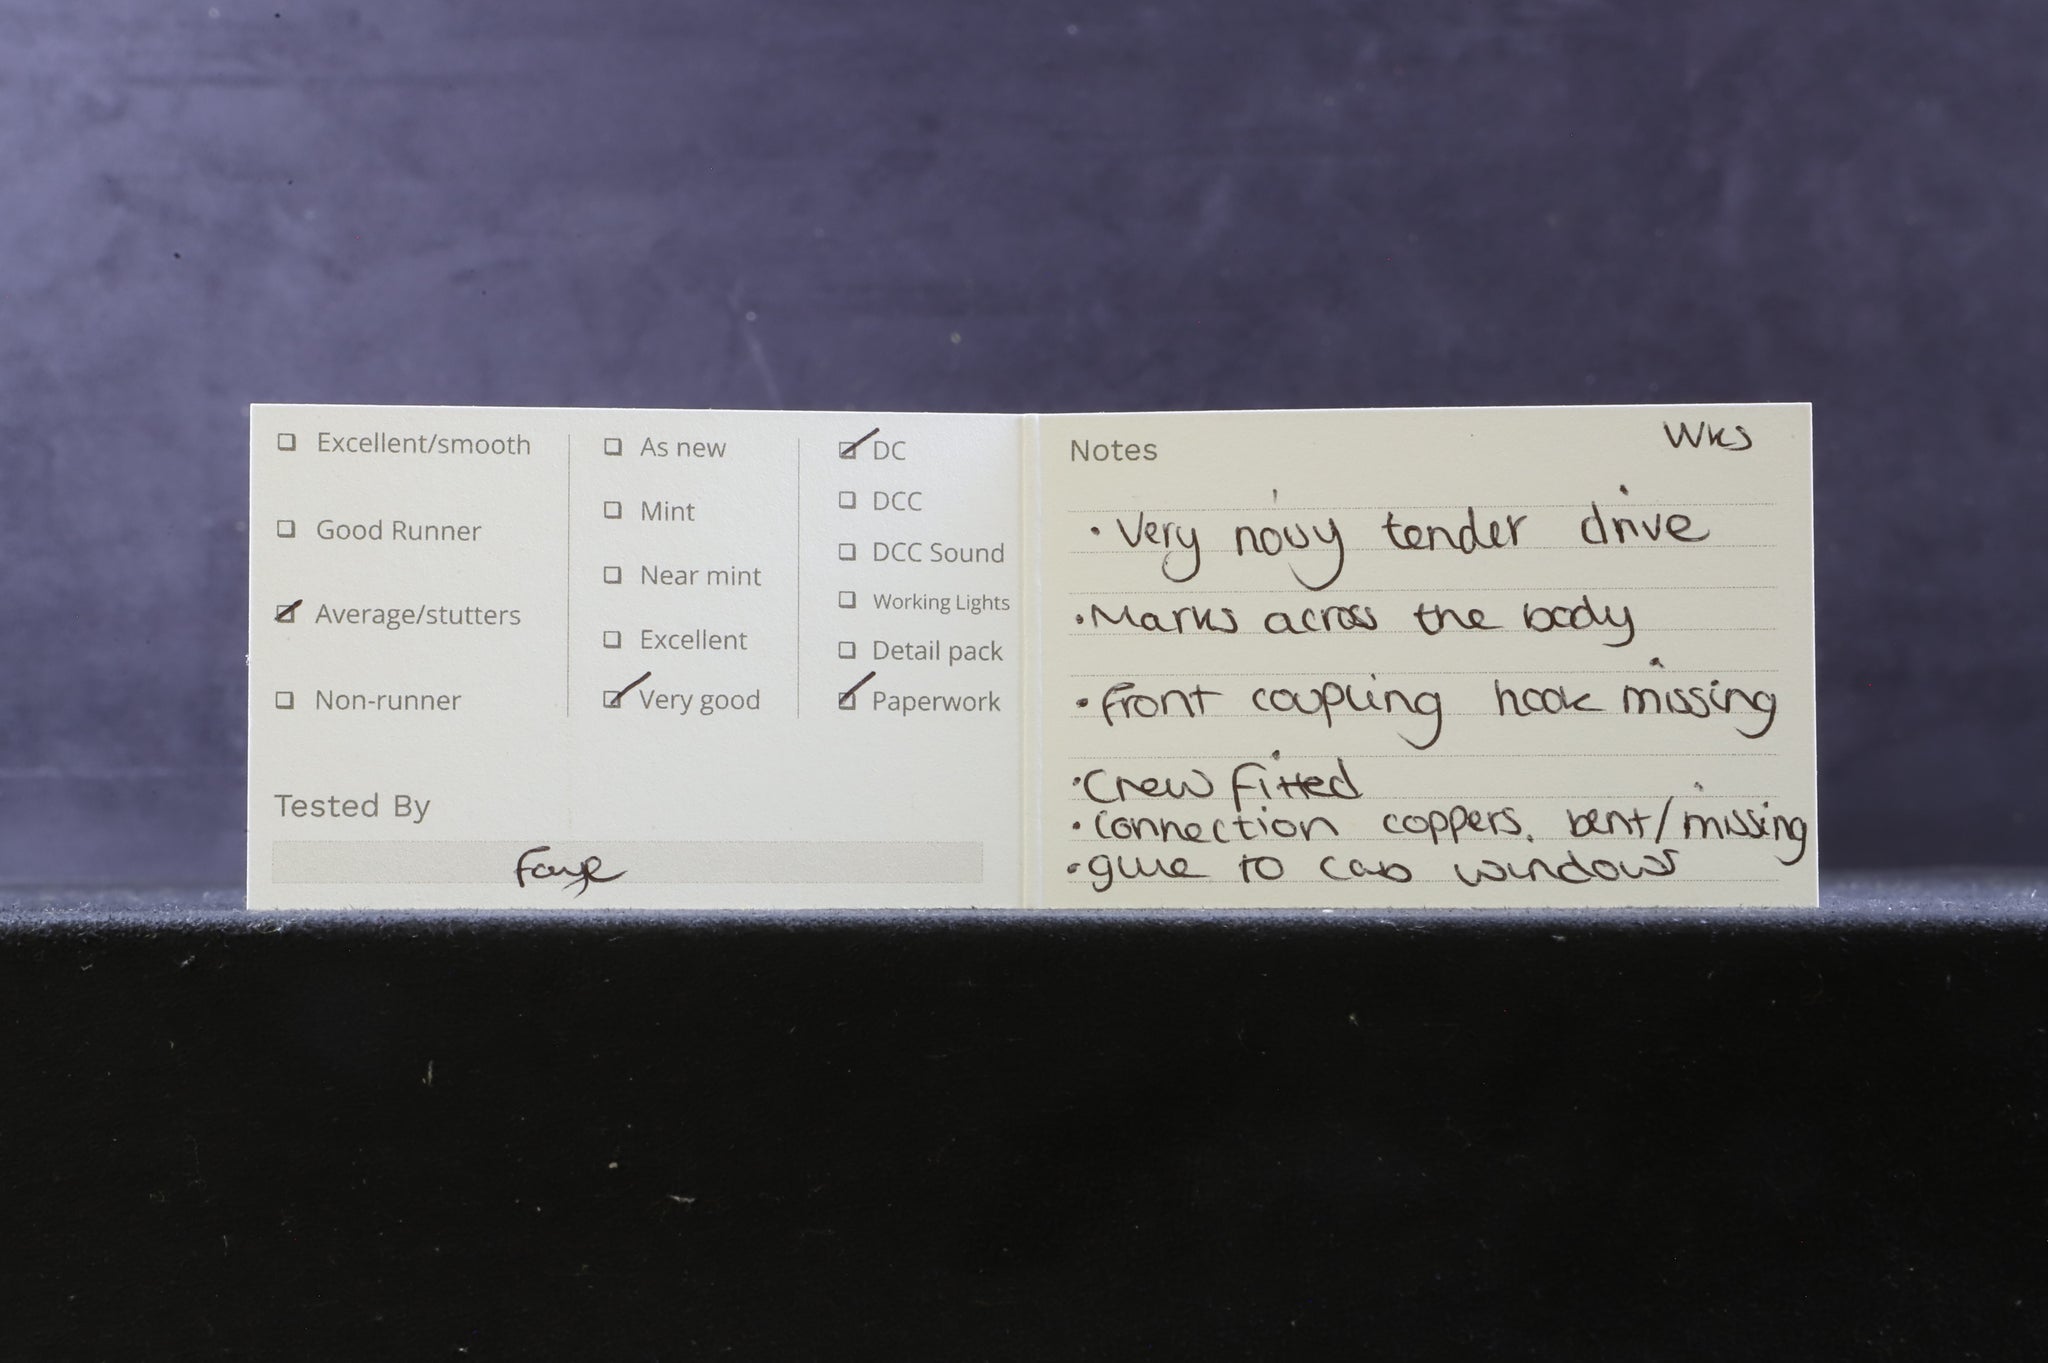 Excellent/smooth
Good Runner
Average/stutters
Non-runner
As new
Mint
Near mint
Excellent
Very good
DC
DCC
DCC Sound
Working Lights
Detail pack
Paperwork
Tested By
Faye
Notes
Wks
• Very noisy tender drive
• Marks across the body
• Front coupling hook missing
• Crew fitted
• Connection coppers. bent/missing
• glue to cab windows